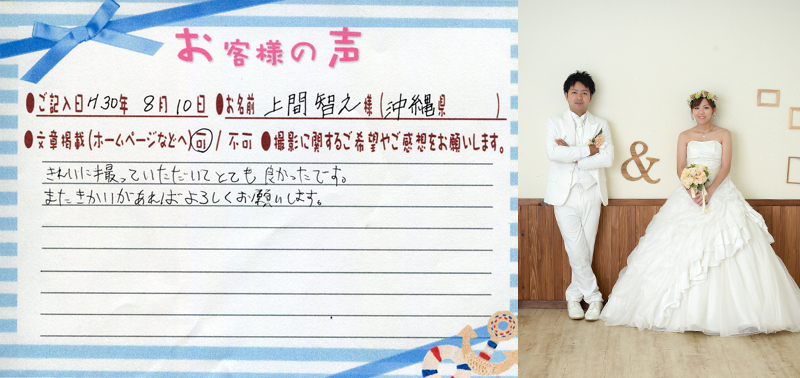 お客様の声
●ご記入日 H30年 8月10日 ●お名前 上間 智之 様 (沖縄県 )
●文章掲載(ホームページなどへ) 可 / 不可 ●撮影に関するご希望やご感想をお願いします。
きれいに撮っていただいてとても良かったです。
またきかいがあればよろしくお願いします。
&